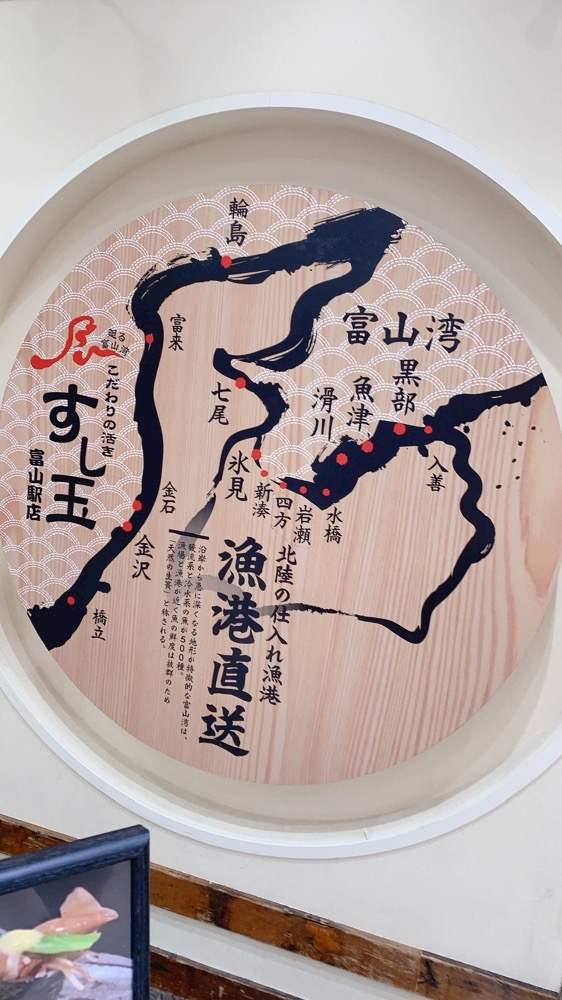 輪島
富来
富山湾
七尾
滑川
魚津
黒部
入善
氷見
新湊
四方
岩瀬
水橋
金石
金沢
橋立
廻る
富山湾
こだわりの活き
すし玉
富山駅店
北陸の仕入れ漁港
漁港直送
沿岸から急に深くなる地形が特徴的な富山湾は、
暖流系と冷水系の魚が500種。
漁場と漁港が近く魚の鮮度は抜群のため
「天然の生簀」と称される。